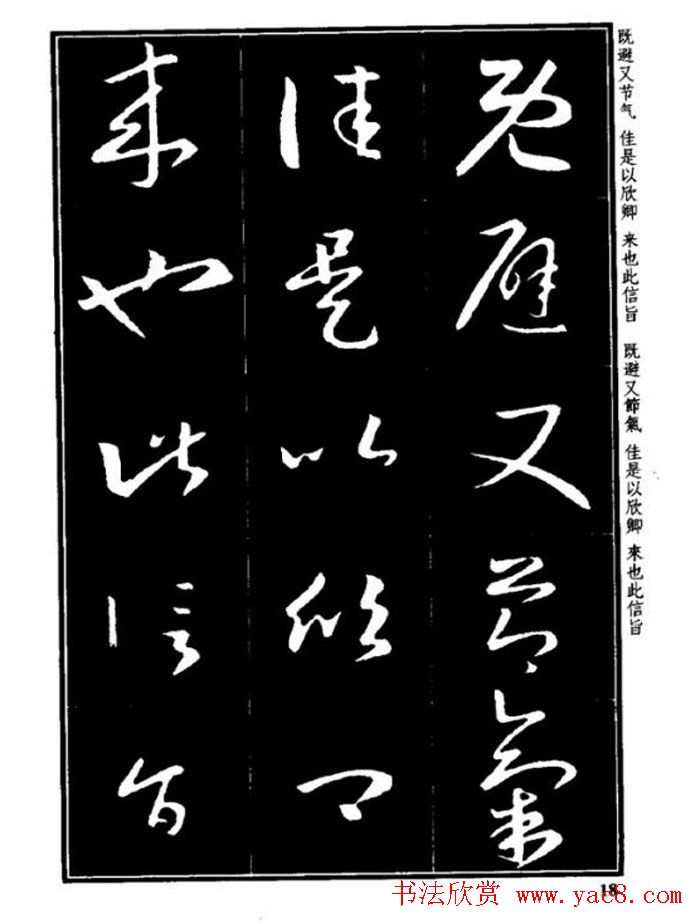 既避又節氣
佳是以欣卿
来也此信旨
既避又节气 佳是以欣卿 来也此信旨
既避又節氣 佳是以欣卿 來也此信旨
18
书法欣赏 www.yac8.com